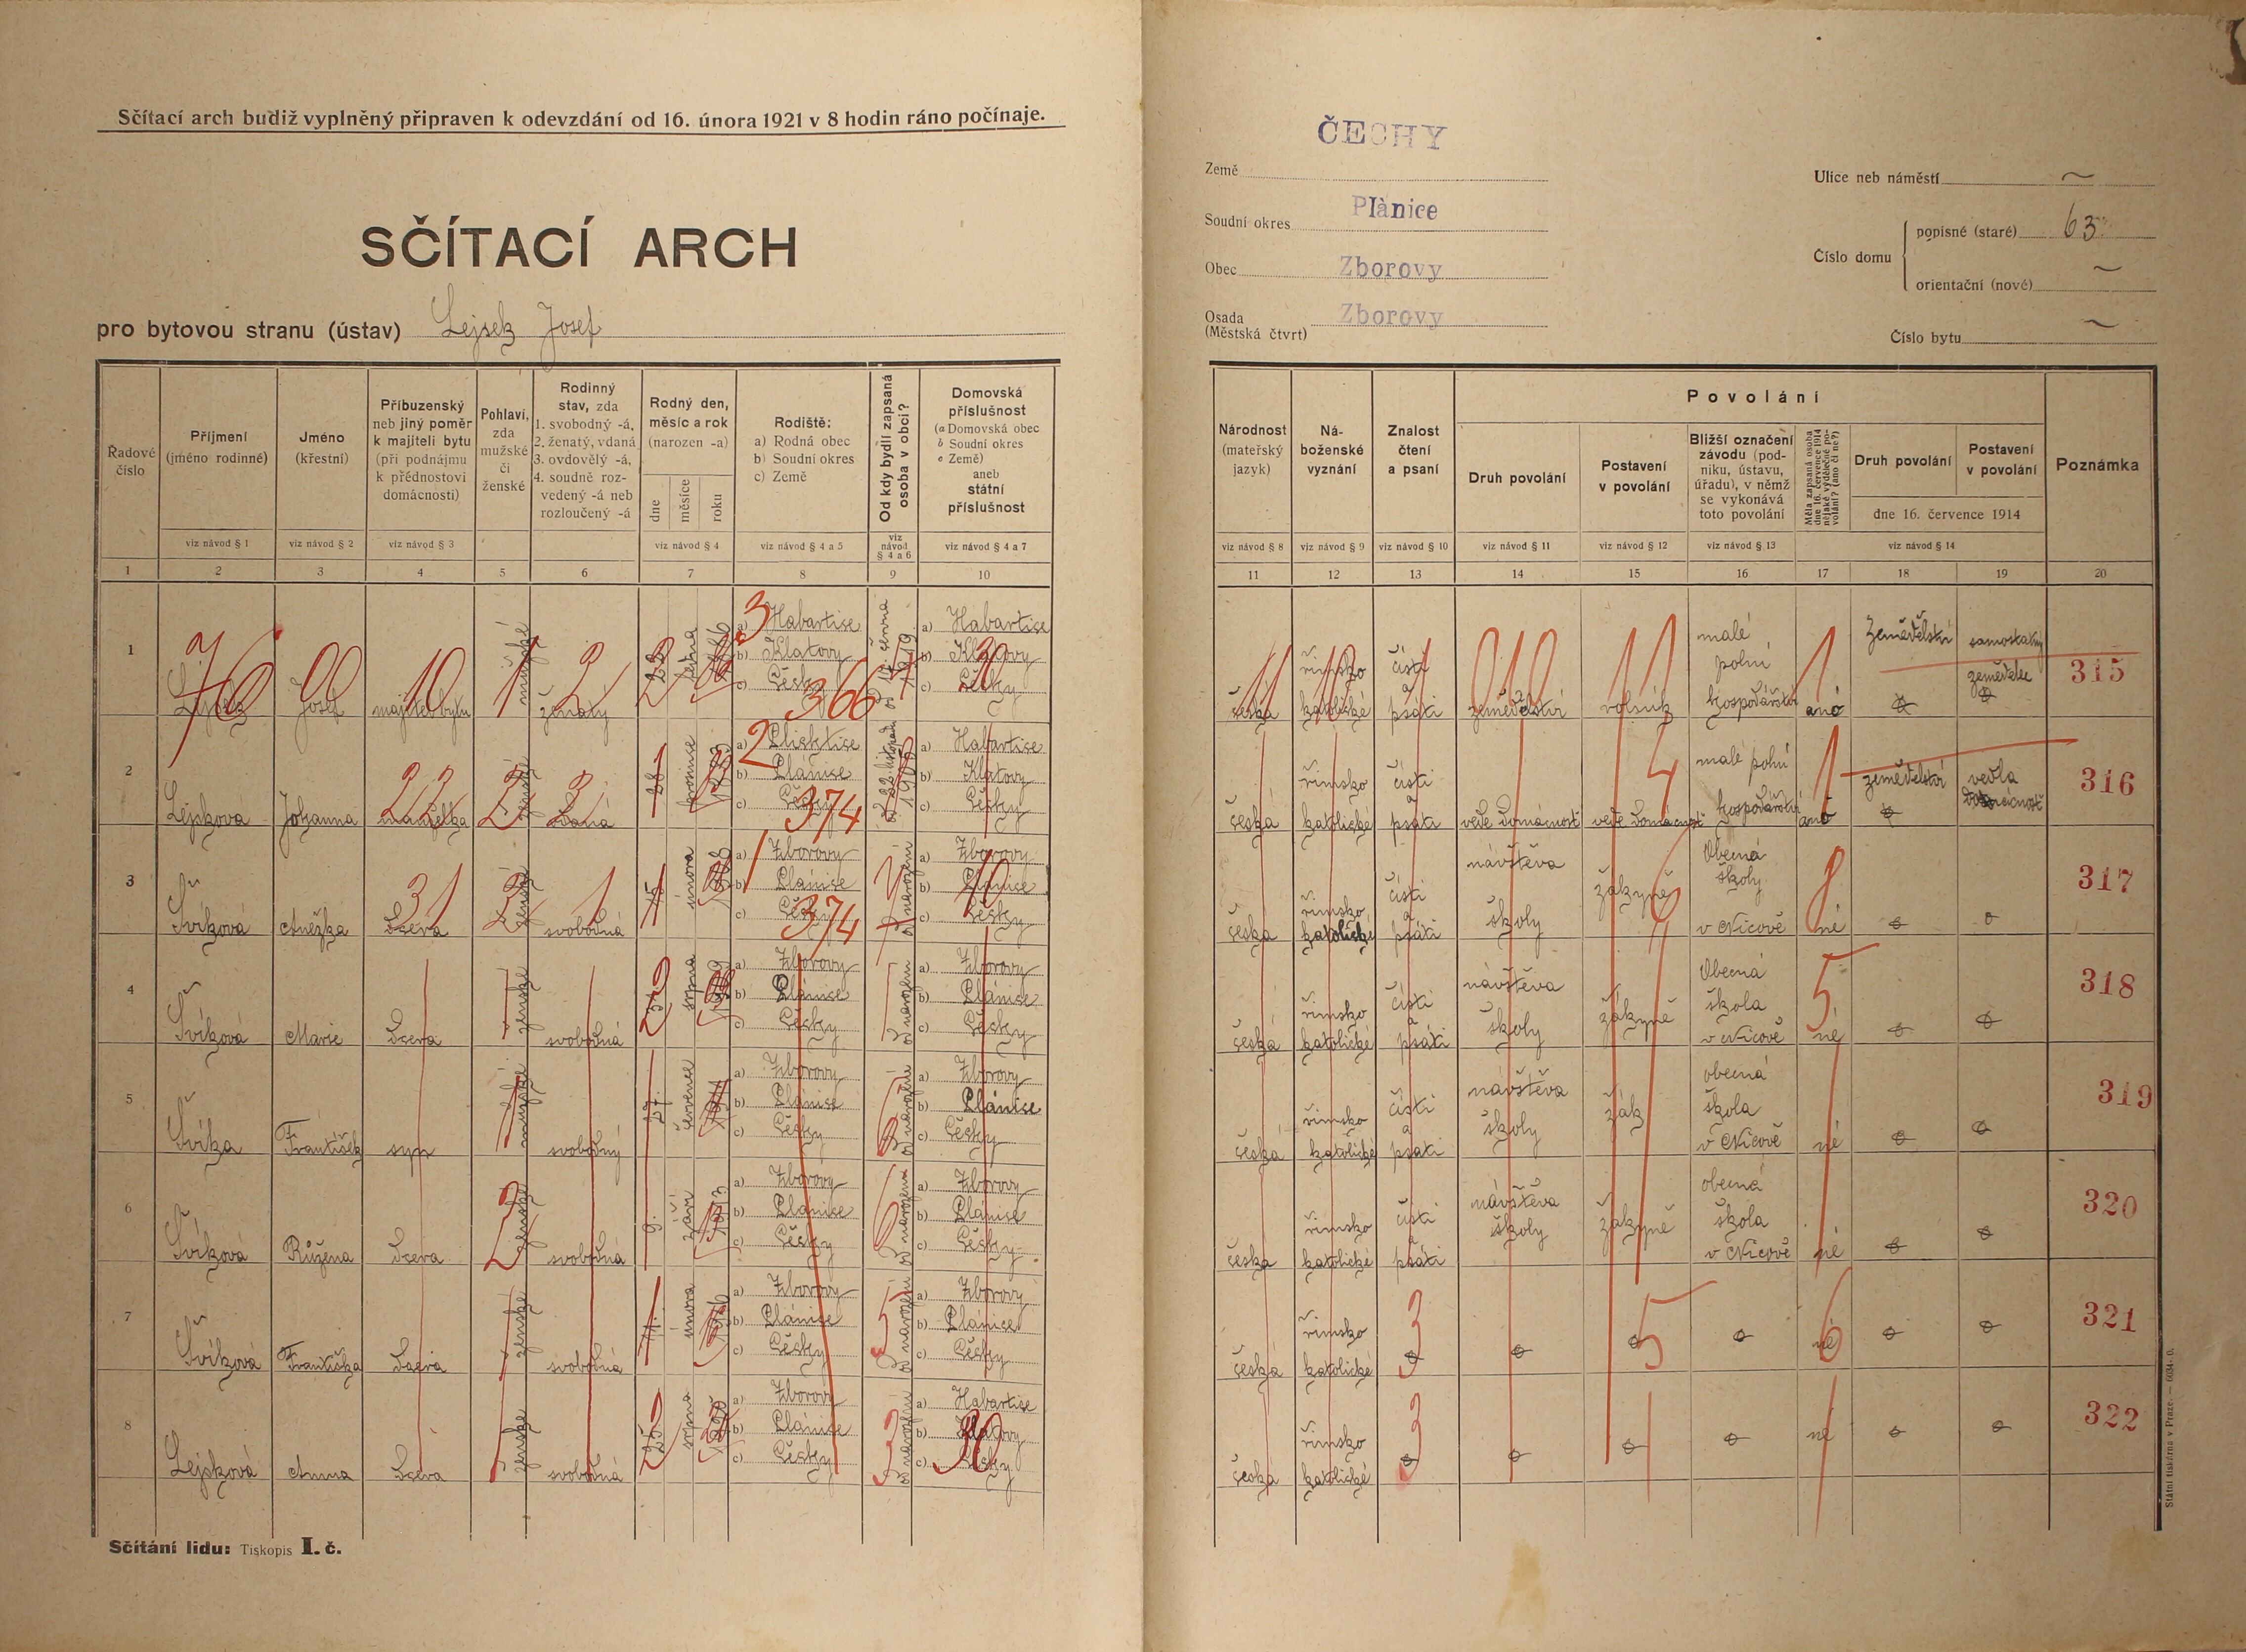 Sčítací arch budiž vyplněný připraven k odevzdání od 16. února 1921 v 8 hodin ráno počínaje.
SČÍTACÍ ARCH
pro bytovou stranu (ústav) Lejsek Josef
ČECHY
Země
Soudní okres Plànice
Obec Zborovy
Osada (Městská čtvrt) Zborovy
Ulice neb náměstí
Číslo domu popisné (staré) 63
orientační (nové)
Číslo bytu
Řadové číslo
Příjmení (jméno rodinné)
Jméno (křestní)
Příbuzenský neb jiný poměr k majiteli bytu (při podnájmu k přednostovi domácnosti)
Pohlaví, zda mužské či ženské
Rodinný stav, zda 1. svobodný -á, 2. ženatý, vdaná 3. ovdovělý -á, 4. soudně rozvedený -á neb rozloučený -á
Rodný den, měsíc a rok (narozen -a)
dne měsíce roku
Rodiště: a) Rodná obec b) Soudní okres c) Země
Od kdy bydlí zapsaná osoba v obci?
Domovská příslušnost (a Domovská obec b Soudní okres c Země) aneb státní příslušnost
Národnost (mateřský jazyk)
Náboženské vyznání
Znalost čtení a psaní
Povolání
Druh povolání
Postavení v povolání
Bližší označení závodu (podniku, ústavu, úřadu), v němž se vykonává toto povolání
Měla zapsaná osoba dne 16. července 1914 nějaké výdělečné povolání? (ano či ne?)
Druh povolání
Postavení v povolání
dne 16. července 1914
Poznámka
viz návod § 1 viz návod § 2 viz návod § 3 viz návod § 4 viz návod § 4 a 5 viz návod § 4 a 6 viz návod § 4 a 7
viz návod § 8 viz návod § 9 viz návod § 10 viz návod § 11 viz návod § 12 viz návod § 13 viz návod § 14
1 2 3 4 5 6 7 8 9 10
11 12 13 14 15 16 17 18 19 20
1 Josef majitel bytu mužské ženatý a) Habartice b) Klatovy c) Čechy 366 a) Habartice b) Klatovy c) Čechy
česká římsko katolické čísti a psáti zemědělství rolník malé polní hospodářství ano Zemědělství samostatný zemědělec 315
2 Lejskova Johanna manželka ženské vdaná 28 b) Plánice c) Čechy 374 a) Habartice b) Klatovy c) Čechy
česká římsko katolické čísti a psáti vede domácnost vede domácnost malé polní hospodářství ano zemědělství vedla domácnost 316
3 Švíková Anežka Dcera ženské svobodná 15 února a) Zborovy b) Plánice c) Čechy 374 od narození a) Zborovy b) Plánice c) Čechy
česká římsko katolické čísti a psáti návštěva školy žákyně Obecná školy v Nicově né 317
4 Švíková Marie Dcera ženské svobodná srpna a) Zborovy b) Plánice c) Čechy od narození a) Zborovy b) Plánice c) Čechy
česká římsko katolické čísti a psáti návštěva školy žákyně Obecná škola v Nicově né 318
5 Švíka František syn mužské svobodný 27. července a) Zborovy b) Plánice c) Čechy od narození a) Zborovy b) Plánice c) Čechy
česká římsko katolické čísti a psati návštěva školy žák obecná škola v Nicově né 319
6 Švíková Růžena Dcera ženské svobodná 9. září 1913 a) Zborovy b) Plánice c) Čechy od narození a) Zborovy b) Plánice c) Čechy
česka římsko katolické čísti a psáti návštěva školy žákyně obecná škola v Nicově né 320
7 Švíková Františka Dcera ženské svobodná 11. února a) Zborovy b) Plánice c) Čechy od narození a) Zborovy b) Plánice c) Čechy
česká římsko katolické né 321
8 Lejsková Anna Dcera ženské svobodná srpna 1920 a) Zborovy b) Plánice c) Čechy od narození a) Habartice b) Klatovy c) Čechy
česká římsko katolické né 322
Sčítání lidu: Tiskopis I. č.
Státní tiskárna v Praze. — 6034-0.